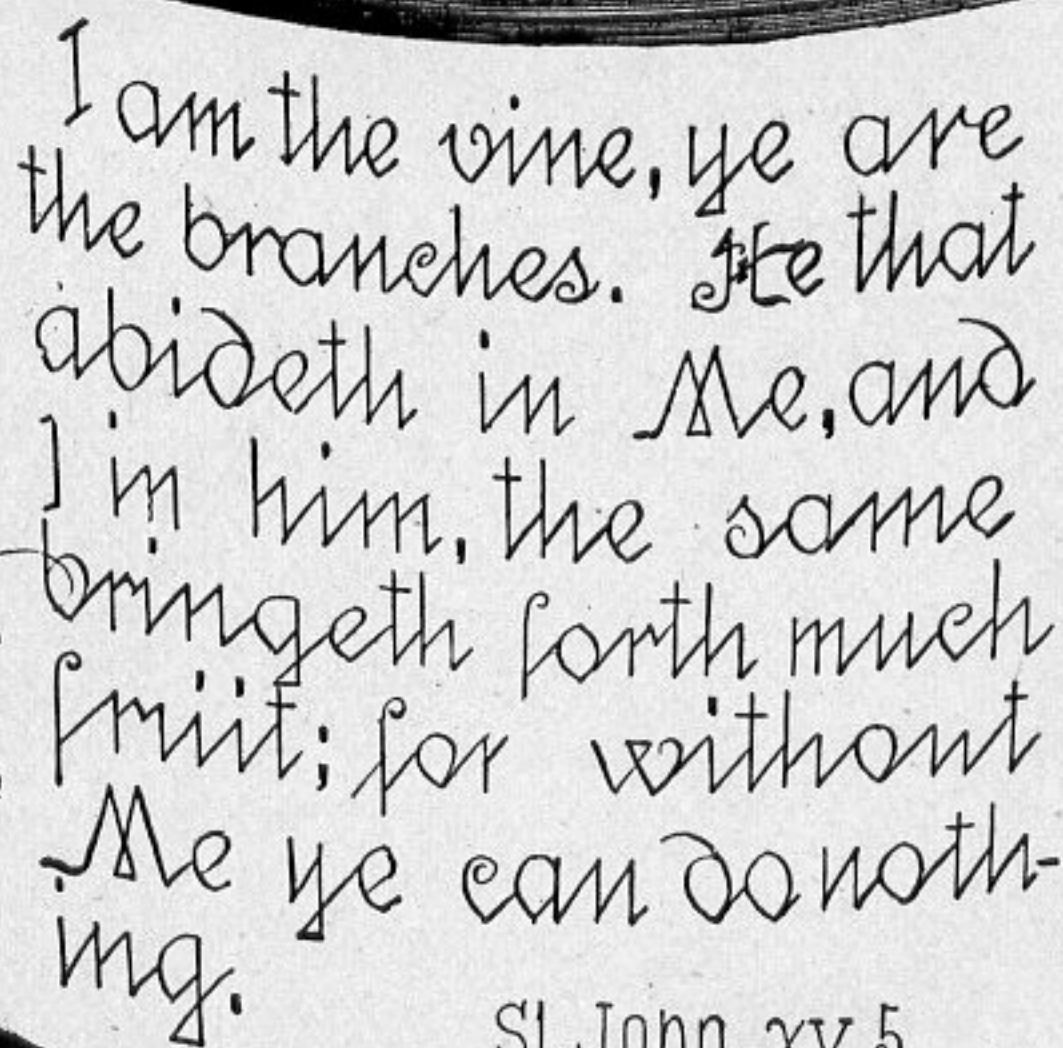 I am the vine, ye are
the branches. He that
abideth in Me, and
I in him, the same
bringeth forth much
fruit; for without
Me ye can do noth-
ing.
St. John xv. 5